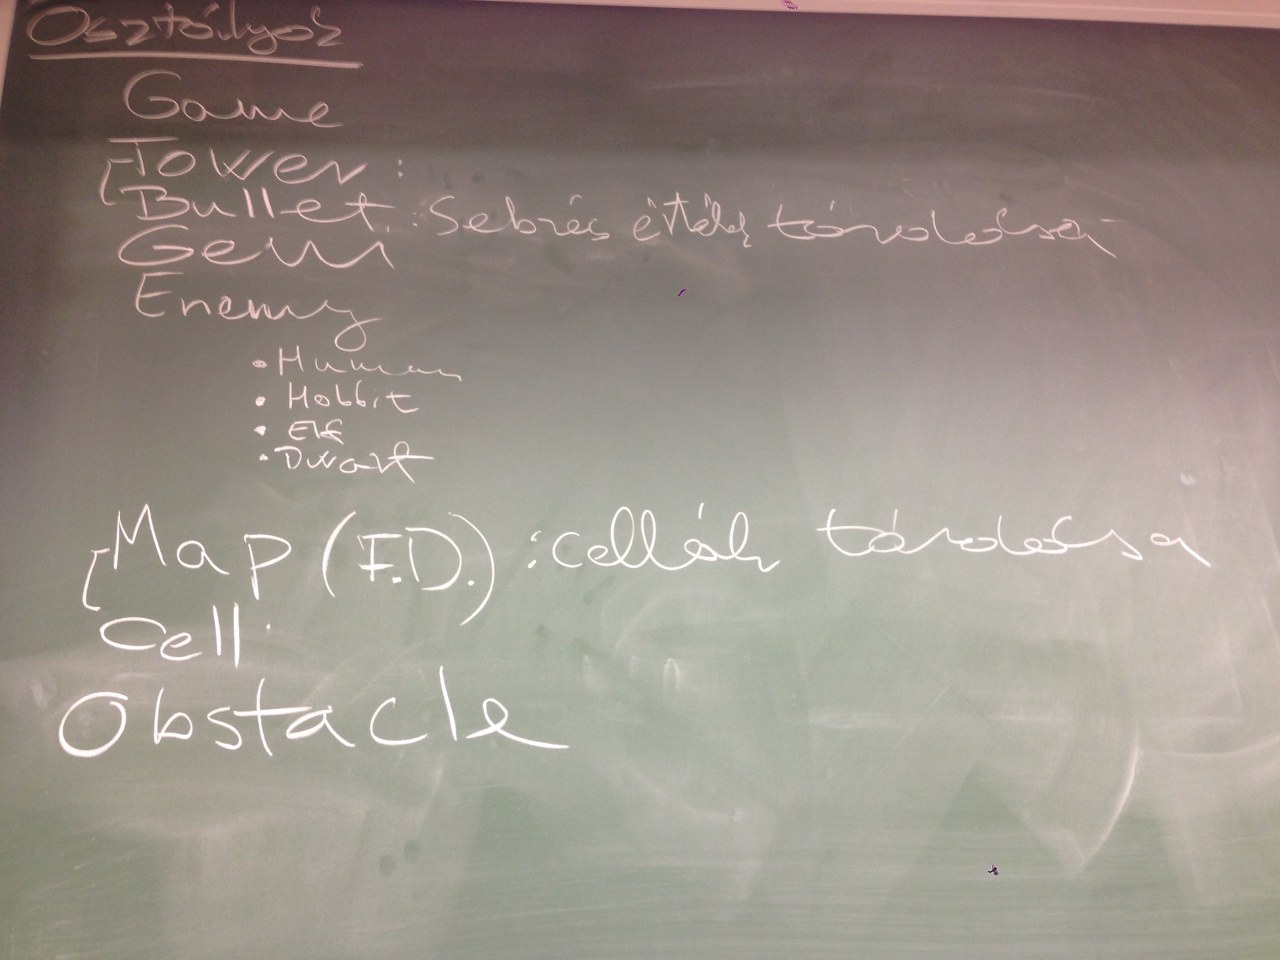 Osztályok
Game
Tower:
Bullet: Sebzés érték tárolása
Gem
Enemy
• Human
• Hobbit
• Elf
• Dwarf
Map (F.D.) : cellák tárolása
Cell
Obstacle